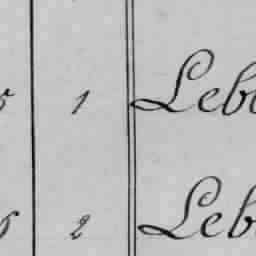 5 1 Leb
6 2 Leb